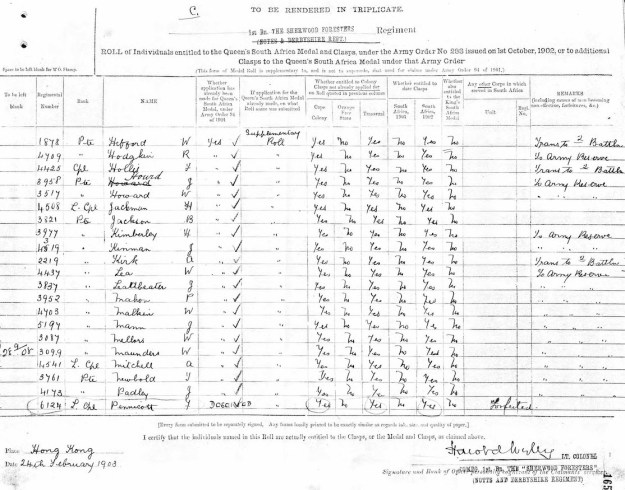 C.
TO BE RENDERED IN TRIPLICATE.
1st Bn. THE SHERWOOD FORESTERS Regiment
(NOTTS & DERBYSHIRE REGT.)
ROLL of Individuals entitled to the Queen's South Africa Medal and Clasps, under the Army Order No 293 issued on 1st October, 1902, or to additional
Clasps to the Queen's South Africa Medal under that Army Order
To be left blank
Regimental Number
Rank
NAME
Whether application has already been made for Queen's South Africa Medal, under Army Order 94 of 1901
If application for the Queen's South Africa Medal already made, on what Roll same was submitted
Whether entitled to Colony Clasps not already applied for on Roll quoted in previous column
Cape Colony
Orange Free State
Transvaal
Whether entitled to date Clasps
South Africa, 1901
South Africa, 1902
Whether also entitled to the King's South Africa Medal
Any other Corps in which served in South Africa
Unit
Regtl. No.
REMARKS
Supplementary
1878 Pte Hefford W Yes ✓ Roll Yes No Yes No Yes No Trans to 2 Battln
4709 " Hodgkin R " ✓ " Yes No Yes No Yes No To Army Reserve
4425 Cpl Hollis J " ✓ " Yes No Yes No Yes No Trans to 2 Battln
Hourd
3958 Pte Howard J " ✓ " Yes No Yes No Yes No To Army Reserve
3517 " Howard W " ✓ " Yes No Yes No Yes No
4508 L. Cpl Jackman H " ✓ " Yes No Yes No Yes No
3821 Pte Jackson B " ✓ " Yes No Yes No Yes No
3977 " Kimberley H " ✓ " Yes No Yes No Yes No To Army Reserve
4319 " Kinman J " ✓ " Yes No Yes No Yes No "
2219 " Kirk A " ✓ " Yes No Yes No Yes No Trans to 2 Battln
4437 " Lea W " ✓ " Yes No Yes No Yes No To Army Reserve
3837 " Leatbeater J " ✓ " Yes No Yes No Yes No "
3952 " Mahon P " ✓ " Yes No Yes No Yes No "
4703 " Malhein W " ✓ " Yes No Yes No Yes No "
5197 " Mann J " ✓ " Yes No Yes No Yes No "
3087 " Mellors W " ✓ " Yes No Yes No Yes No "
3099 " Maunders W " ✓ " Yes No Yes No Yes No "
4541 L. Cpl Mitchell A " ✓ " Yes No Yes No Yes No "
3761 Pte Newbold J " ✓ " Yes No Yes No Yes No "
4173 " Padley J " ✓ " Yes No Yes No Yes No "
6124 L. Cpl Pennicott F Yes No Yes No Yes No Forfeited
[Every form submitted to be separately signed. Any forms locally printed to be exactly similar as regards size, and quality of paper.]
I certify that the individuals named in this Roll are actually entitled to the Clasps, or the Medal and Clasps, as claimed above.
Place Hong Kong
Date 24th February 1903
LT. COLONEL
COMDG. 1st Bn. THE "SHERWOOD FORESTERS"
(NOTTS AND DERBYSHIRE REGIMENT)
165